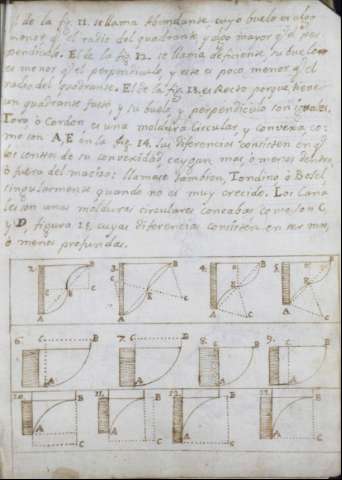 l de la fig. 11. se llama Abundante, cuyo buelo es algo
menor q̃ el radio del quadrante, y algo mayor q̃ el per
pendiculo. El de la fig. 12. se llama deficiente, su buelo
es menor q̃ el perpendiculo, y este es poco menor q̃ el
radio del quadrante. El de la fig. 13. es Recto, porque tiene
un quadrante justo, y su buelo, y perpendiculo son iguales.
Toro, ò Cordon, es una moldura Circular, y convexa, co-
mo son A, E en la fig. 14. Sus diferencias consisten en q̃
los centros de su convexidad, caygan mas, ò menos dentro,
ò fuera del macizo: llamase tambien, Tondino, ò Bosel
singularmente quando no es muy crecido. Los Cana
les son unas molduras circulares concabas como son C
y D, figura 15, cuyas diferencias consisten en ser mas,
ò menos profundas.
2. B E C A
3. B E C A
4. B E C A
5. B E C A
6. C B A
7. C B A
8. B C A
9. C B A
10. B A C
11. B A C
12. B A C
13. B A C